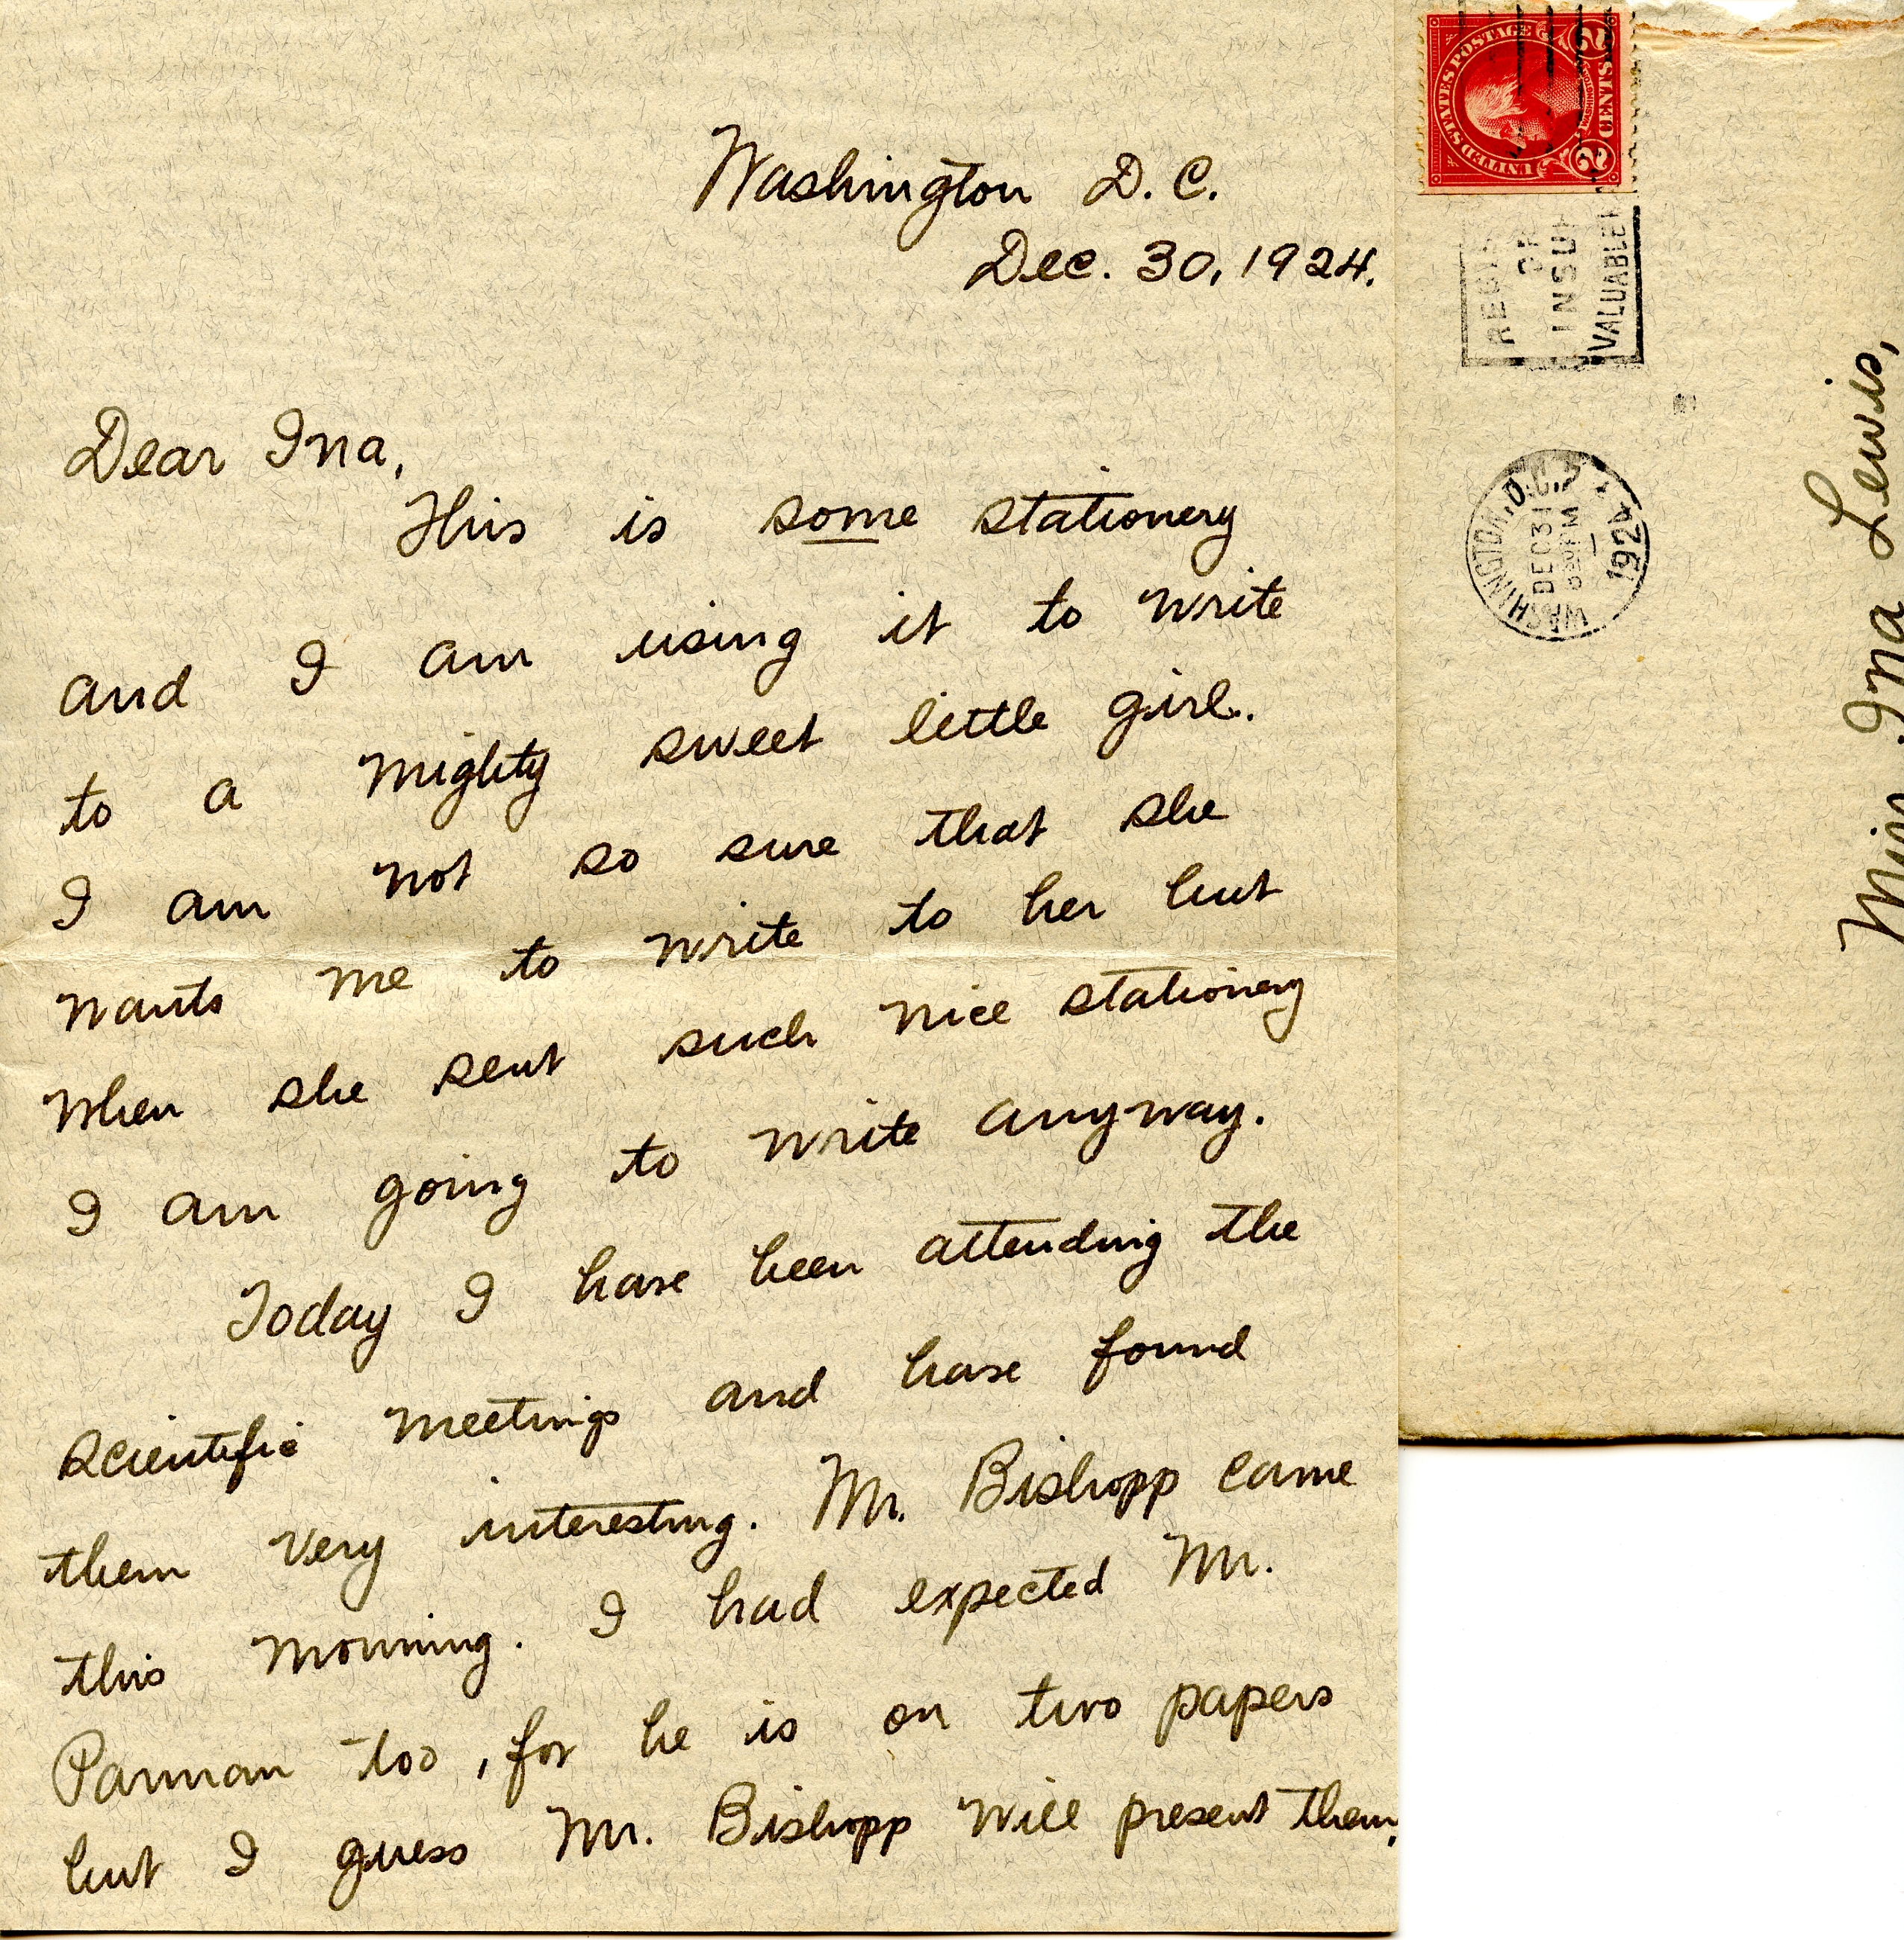 Washington D. C.
Dec. 30, 1924.
Dear Ina,
This is some stationery
and I am using it to write
to a mighty sweet little girl.
I am not so sure that she
wants me to write to her but
when she sent such nice stationery
I am going to write anyway.
Today I have been attending the
scientific meetings and have found
them very interesting. Mr. Bishopp came
this morning. I had expected Mr.
Parman too, for he is on two papers
but I guess Mr. Bishopp will present them.
UNITED STATES POSTAGE
2 CENTS 2
OR
VALUABLE
WASHINGTON, D.C.
DEC 31
PM
1924
Miss Ina Lewis,